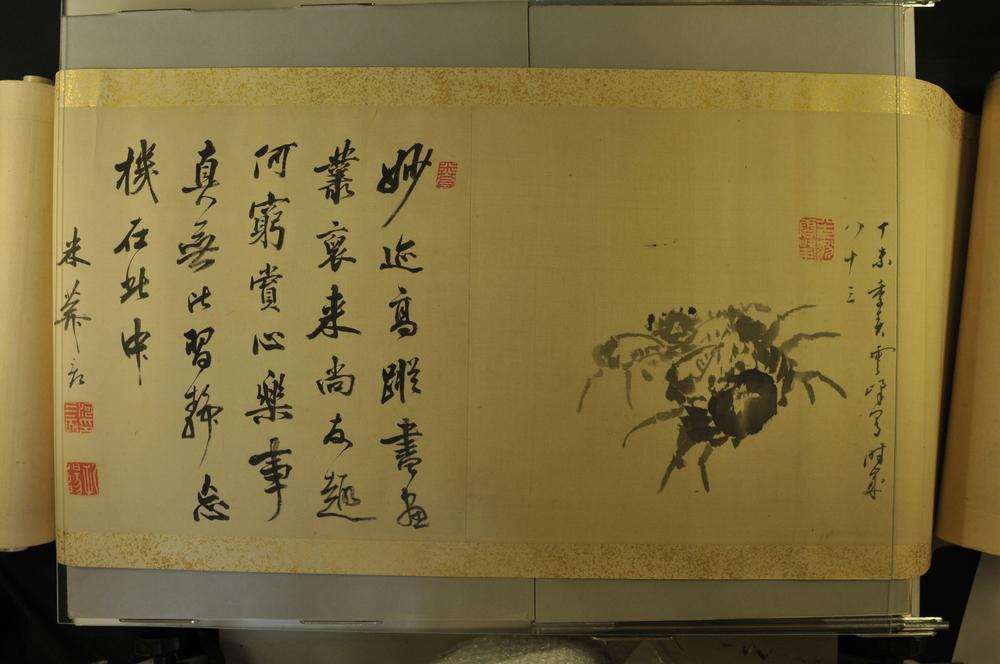 丁未季夏雲峰寫時歲
八十三
妙迹高蹤書畫
叢裏来尚友趣
何窮賞心樂事
真無比習靜忘
機在此中
米葊